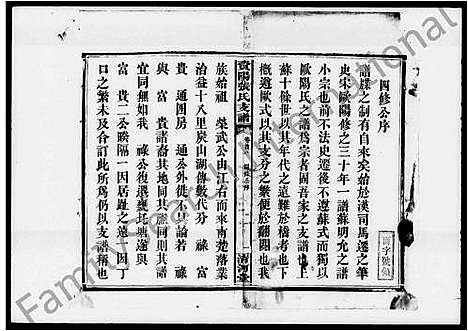 四修公序
譜牒之制有自來矣始於漢司馬遷之筆
史宋歐陽修之三十年一譜蘇明允之譜
小宗也前不法史遷後不遵蘇式而獨以
歐陽氏之譜爲宗者因吾家之支譜也上
蘇十餘世以其年代之遠難於稽考也下
槪遵歐式以其支分之繁便於翻閱也我
資陽張氏支譜
清河堂
族始祖 榮武公由江右而來南楚落業
治益十八里炭山湖傳數代分 祿 富
貴 通四房 通公外徙無論若 祿
與 富 貴 裔者其地同其源同則其譜
宜同無如我 祿公復遷甕
富 貴二公暌隔一因居趾之遠一因
口之繁未及合訂此所爲仍以支譜稱也
FamilySearch International